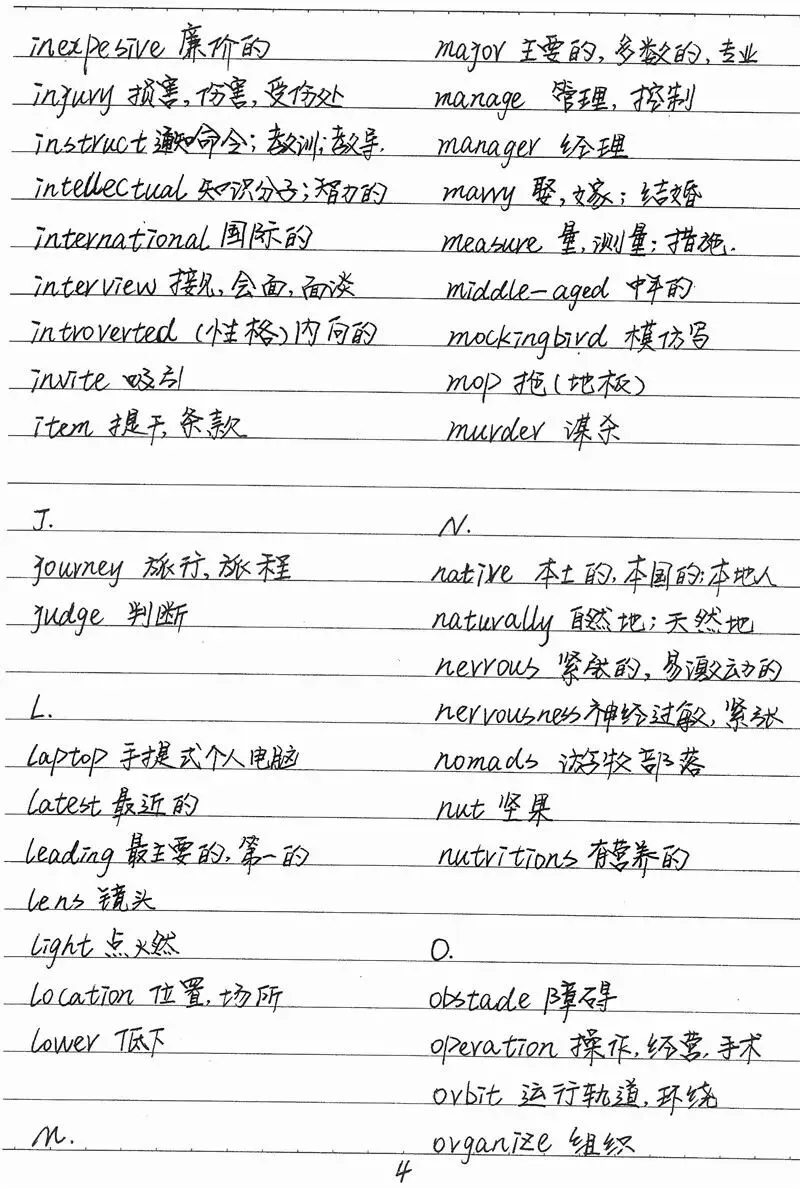 inexpesive 廉价的
injury 损害,伤害,受伤处
instruct 通知命令;教训;教导.
intellectual 知识分子;智力的
international 国际的
interview 接见,会面,面谈
introverted (性格)内向的
invite 吸引
item 提干,条款
J.
journey 旅行,旅程
judge 判断
L.
laptop 手提式个人电脑
latest 最近的
leading 最主要的,第一的
lens 镜头
light 点火然
location 位置,场所
lower 低下
M.
major 主要的,多数的,专业
manage 管理,控制
manager 经理
marry 娶,嫁;结婚
measure 量,测量;措施.
middle-aged 中年的
mockingbird 模仿写
mop 拖(地板)
murder 谋杀
N.
native 本土的,本国的;本地人
naturally 自然地;天然地
nervous 紧张的,易激动的
nervousness 神经过敏,紧张
nomads 游牧部落
nut 坚果
nutritions 有营养的
O.
obstade 障碍
operation 操作,经营,手术
orbit 运行轨道,环绕
organize 组织
4